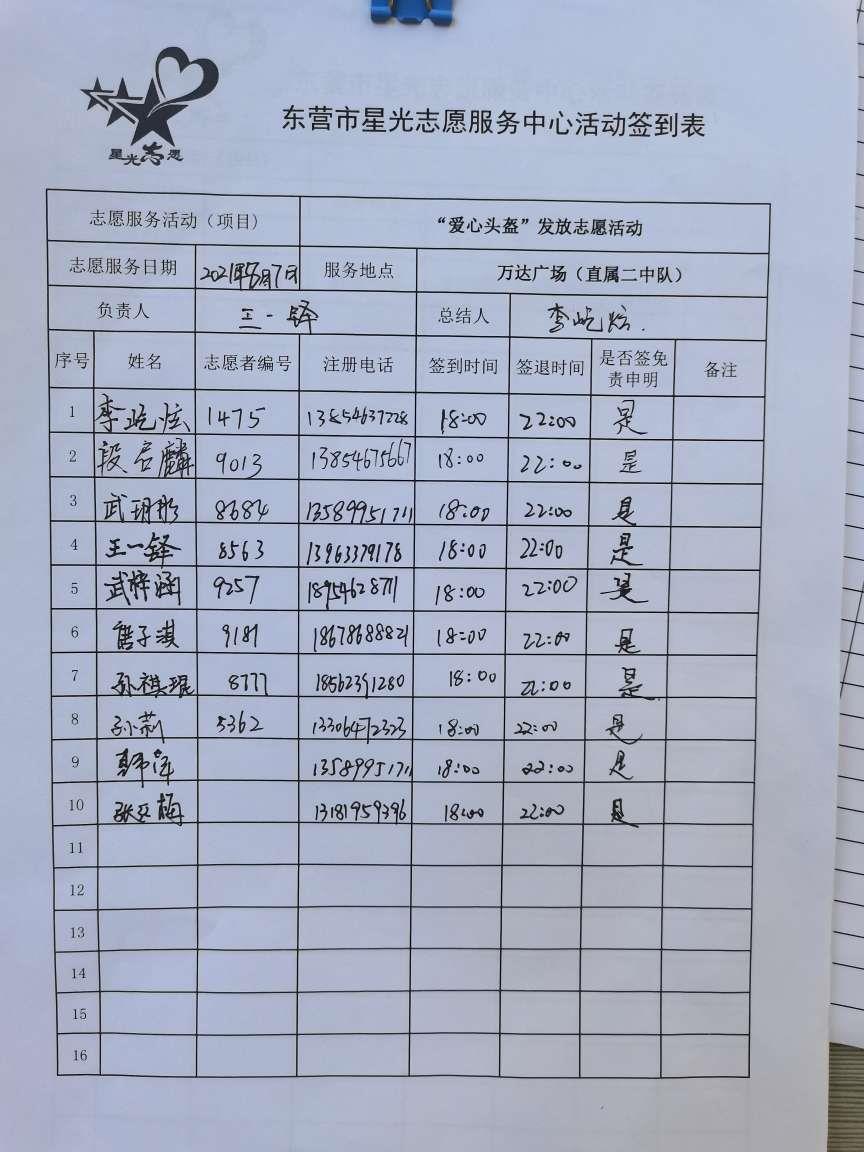 星光志愿
东营市星光志愿服务中心活动签到表
志愿服务活动（项目） “爱心头盔”发放志愿活动
志愿服务日期 2021年8月7日 服务地点 万达广场（直属二中队）
负责人 王一铎 总结人 李屹炫.
序号 姓名 志愿者编号 注册电话 签到时间 签退时间 是否签免责申明 备注
1 李屹炫 1475 13854637228 18:00 22:00 是
2 段启麟 9013 13854675667 18:00 22:00 是
3 武玥彤 8684 13589951711 18:00 22:00 是
4 王一铎 8563 13963379178 18:00 22:00 是
5 武梓涵 9257 18954628711 18:00 22:00 是
6 子淇 9181 18678688821 18:00 22:00 是
7 孙祺琨 8777 18562391280 18:00 22:00 是
8 孙莉 5362 13306472323 18:00 22:00 是
9 13589951711 18:00 22:00 是
10 张梅 13181959396 18:00 22:00 是
11
12
13
14
15
16